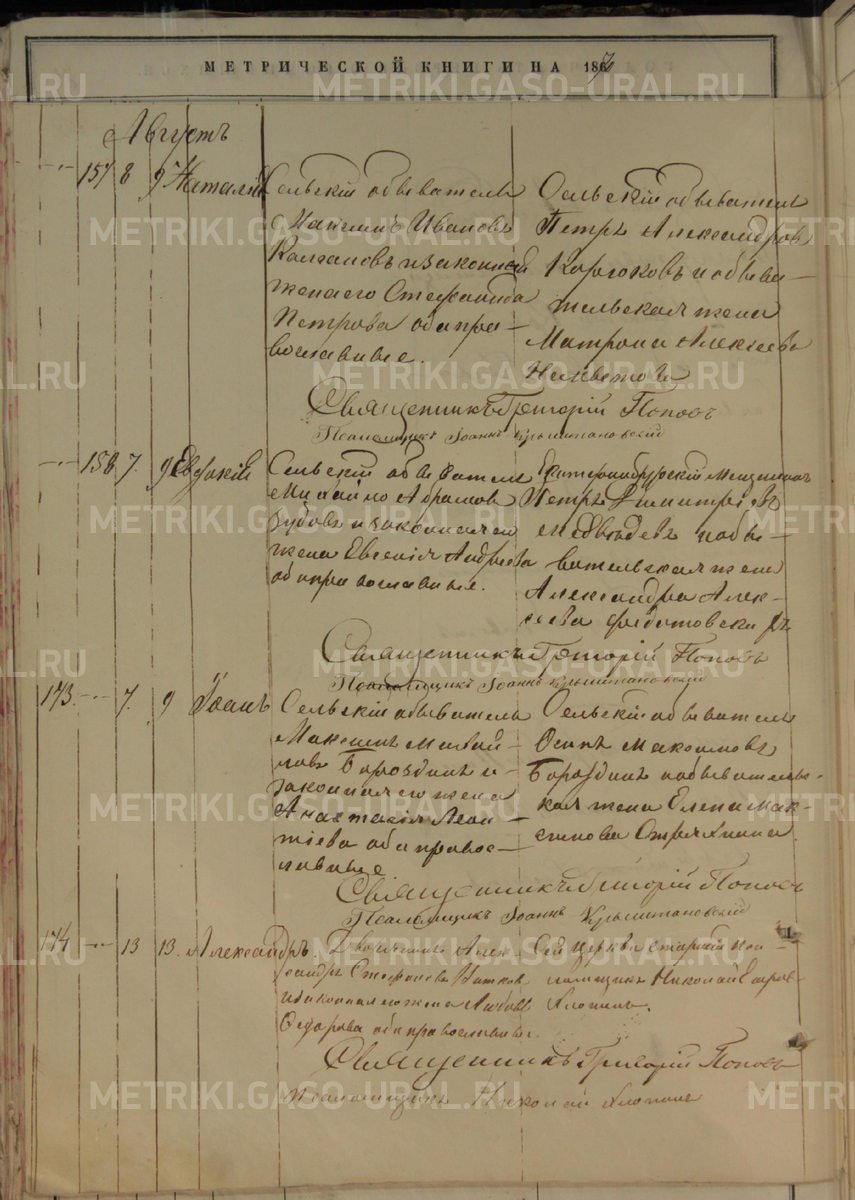 МЕТРИЧЕСКОЙ КНИГИ НА 187
Августъ
157 8 9 Наталія
Сельскій обыватель
Ивановъ
Колгановъ и законная
жена его Стефанида
Петрова оба пра-
вославные.
Сельскій обыватель
Петръ Александровъ
Коротковъ и обыва-
тельская жена
Матрона Алексеева
Священникъ Григорій Поповъ
Псаломщикъ Іоаннъ Крыштановскій
158 7. 9 Евдокія
Сельскій обыватель
Михайло Абрамовъ
Зубовъ и законная его
жена Евгенія Андреева
оба православные.
Екатеринбургскій мещанинъ
Петръ Димитріевъ
Медведевъ и обы-
вательская жена
Александра Алек-
сеева
Священникъ Григорій Поповъ
Псаломщикъ Іоаннъ Крыштановскій
173. 7. 9 Іоаннъ
Сельскій обыватель
Максимъ Михай-
ловъ Бороздинъ и
законная его жена
Анастасія Леон-
тіева оба правос-
лавные
Сельскій обыватель
Осипъ Максимовъ
Бороздинъ и обыватель-
ская жена Елена Мак-
симова Стряхнина.
Священникъ Григорій Поповъ
Псаломщикъ Іоаннъ Крыштановскій
174 13 13. Александръ.
Алек-
сандръ Стефановъ
и законная его жена Любовь
Федорова оба православные.
Сей церкви старшій пса-
ломщикъ Николай
Хлопинъ.
Священникъ Григорій Поповъ
Псаломщикъ Николай Хлопинъ
METRIKI.GASO-URAL.RU